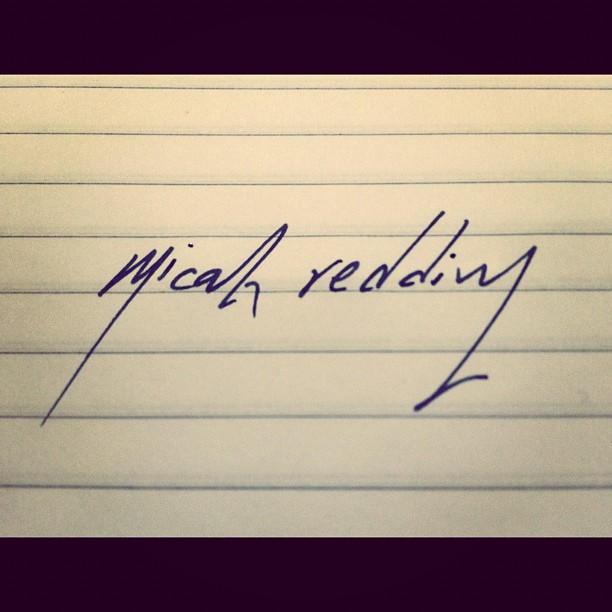 micah redding